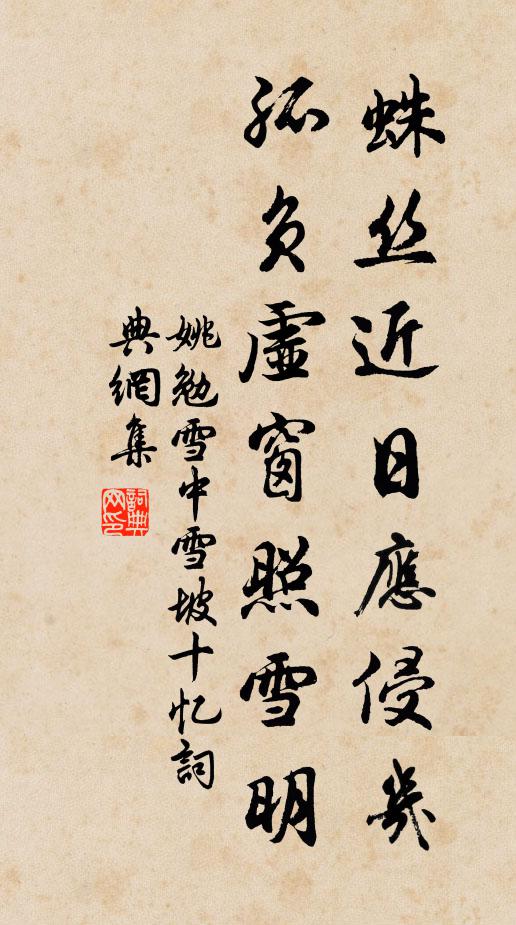 蛛丝近日應侵幾
孤负虛窗照雪明
姚勉雪中雪坡十忆詞
典網集
詞典网印